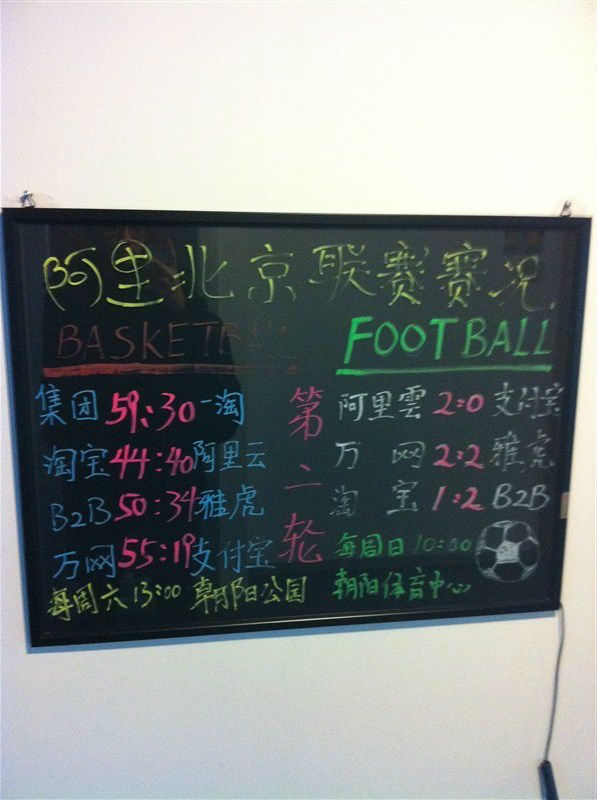 阿里北京联赛赛况
BASKETBALL
集团 59:30 一淘
淘宝 44:40 阿里云
B2B 50:34 雅虎
万网 55:19 支付宝
每周六 13:00 朝阳公园
第二轮
FOOTBALL
阿里雲 2:0 支付宝
万网 2:2 雅虎
淘宝 1:2 B2B
每周日 10:00
朝阳体育中心